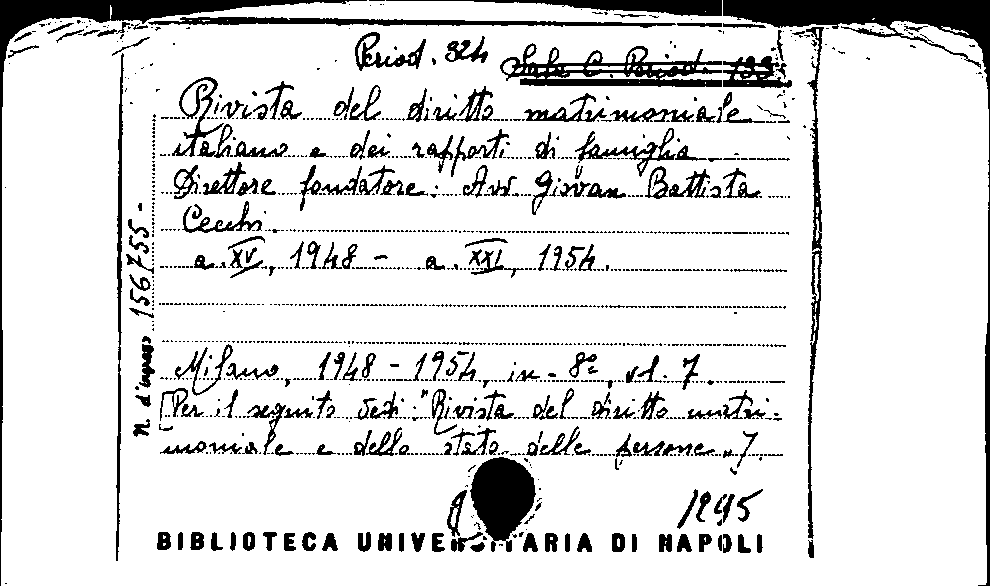 Period. 324 Sala C. Period. 133
Rivista del diritto matrimoniale
italiano e dei rapporti di famiglia
Direttore fondatore: Avv Giovan Battista
Cecchi.
a. XV, 1948 - a. XXI, 1954.
N. d'ingresso 156755-
Milano, 1948 - 1954, in - 8º, vl. 7.
[Per il seguito vedi: "Rivista del diritto matri-
moniale e dello stato delle persone"].
1295
BIBLIOTECA UNIVERSITARIA DI NAPOLI